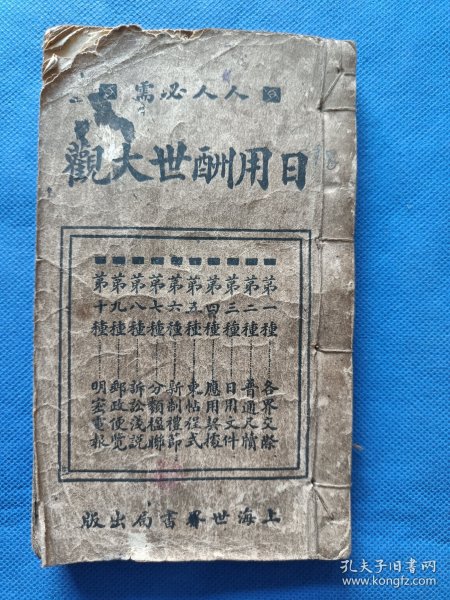 人人必需
日用酬世大觀
第一種 各界交際
第二種 普通尺牘
第三種 日用文件
第四種 應用契據
第五種 柬帖程式
第六種 新制禮節
第七種 分類楹聯
第八種 訴訟淺説
第九種 郵政便覽
第十種 明密電報
上海世界書局出版
18
孔夫子旧书网
www.kongfz.com